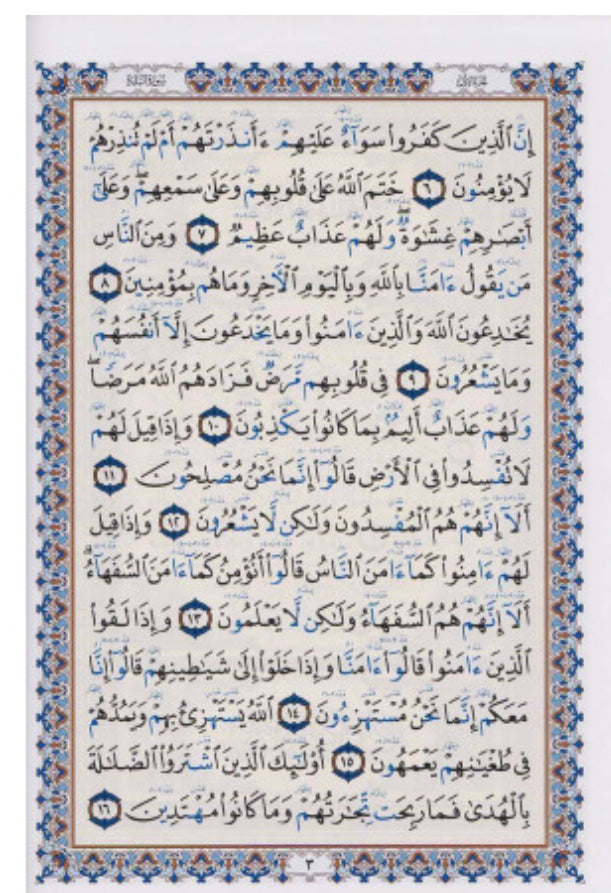 الجزء الأول سورة البقرة
إِنَّ ٱلَّذِينَ كَفَرُوا۟ سَوَآءٌ عَلَيْهِمْ ءَأَنذَرْتَهُمْ أَمْ لَمْ تُنذِرْهُمْ
لَا يُؤْمِنُونَ ٦ خَتَمَ ٱللَّهُ عَلَىٰ قُلُوبِهِمْ وَعَلَىٰ سَمْعِهِمْ ۖ وَعَلَىٰٓ
أَبْصَٰرِهِمْ غِشَٰوَةٌ ۖ وَلَهُمْ عَذَابٌ عَظِيمٌ ٧ وَمِنَ ٱلنَّاسِ
مَن يَقُولُ ءَامَنَّا بِٱللَّهِ وَبِٱلْيَوْمِ ٱلْأَخِرِ وَمَا هُم بِمُؤْمِنِينَ ٨
يُخَٰدِعُونَ ٱللَّهَ وَٱلَّذِينَ ءَامَنُوا۟ وَمَا يَخْدَعُونَ إِلَّآ أَنفُسَهُمْ
وَمَا يَشْعُرُونَ ٩ فِى قُلُوبِهِم مَّرَضٌ فَزَادَهُمُ ٱللَّهُ مَرَضًا ۖ
وَلَهُمْ عَذَابٌ أَلِيمٌۢ بِمَا كَانُوا۟ يَكْذِبُونَ ١٠ وَإِذَا قِيلَ لَهُمْ
لَا تُفْسِدُوا۟ فِى ٱلْأَرْضِ قَالُوٓا۟ إِنَّمَا نَحْنُ مُصْلِحُونَ ١١
أَلَآ إِنَّهُمْ هُمُ ٱلْمُفْسِدُونَ وَلَٰكِن لَّا يَشْعُرُونَ ١٢ وَإِذَا قِيلَ
لَهُمْ ءَامِنُوا۟ كَمَآ ءَامَنَ ٱلنَّاسُ قَالُوٓا۟ أَنُؤْمِنُ كَمَآ ءَامَنَ ٱلسُّفَهَآءُ ۗ
أَلَآ إِنَّهُمْ هُمُ ٱلسُّفَهَآءُ وَلَٰكِن لَّا يَعْلَمُونَ ١٣ وَإِذَا لَقُوا۟
ٱلَّذِينَ ءَامَنُوا۟ قَالُوٓا۟ ءَامَنَّا وَإِذَا خَلَوْا۟ إِلَىٰ شَيَٰطِينِهِمْ قَالُوٓا۟ إِنَّا
مَعَكُمْ إِنَّمَا نَحْنُ مُسْتَهْزِءُونَ ١٤ ٱللَّهُ يَسْتَهْزِئُ بِهِمْ وَيَمُدُّهُمْ
فِى طُغْيَٰنِهِمْ يَعْمَهُونَ ١٥ أُو۟لَٰٓئِكَ ٱلَّذِينَ ٱشْتَرَوُا۟ ٱلضَّلَٰلَةَ
بِٱلْهُدَىٰ فَمَا رَبِحَت تِّجَٰرَتُهُمْ وَمَا كَانُوا۟ مُهْتَدِينَ ١٦
٣